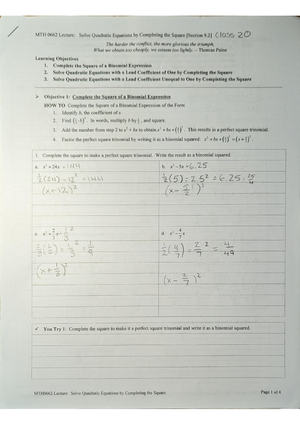 MTH 0662 Lecture: Solve Quadratic Equations by Completing the Square [Section 9.2] Class 20
The harder the conflict, the more glorious the triumph,
What we obtain too cheaply, we esteem too lightly. - Thomas Paine
Learning Objectives
1. Complete the Square of a Binomial Expression
2. Solve Quadratic Equations with a Lead Coefficient of One by Completing the Square
3. Solve Quadratic Equations with a Lead Coefficient Unequal to One by Completing the Square
➢ Objective 1: Complete the Square of a Binomial Expression
HOW TO Complete the Square of a Binomial Expression of the Form
1. Identify b, the coefficient of x
2. Find (½·b)². In words, multiply b by ½, and square.
3. Add the number from step 2 to x² + bx to obtain x² + bx + (b/2)². This results in a perfect square trinomial.
4. Factor the perfect square trinomial by writing it as a binomial squared: x² + bx + (b/2)² = (x + b/2)².
1. Complete the square to make a perfect square trinomial. Write the result as a binomial squared.
a. x² + 24x + 144
½(24) = 12² = 144
(x + 12)²
b. x² − 5x + 6.25
½(5) = 2.5² = 6.25 = 25/4
(x − 5/2)²
d. x² − 4/7 x
½(4/7) = 2/7² = 4/49
(x − 2/7)²
✓ You Try 1: Complete the square to make it a perfect square trinomial and write it as a binomial squared.
MTH0662 Lecture: Solve Quadratic Equations by Completing the Square
Page 1 of 4